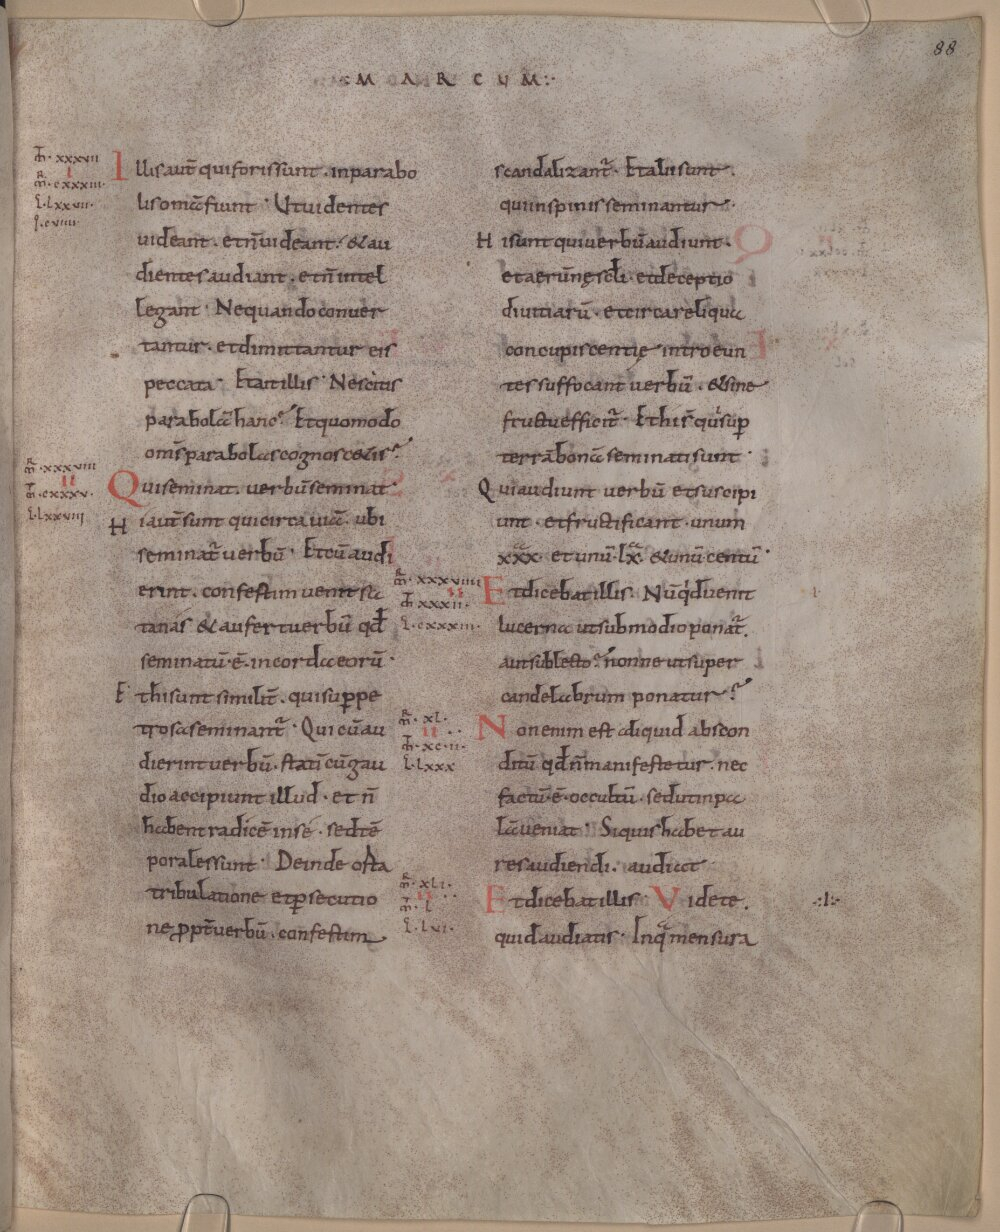 88
MARCUM
Illis aut̄ qui foris sunt. in parabo
lis om̄a fiunt. Ut videntes
uideant. et n̄ uideant. & au
dientes audiant. et n̄ intel
legant. Ne quando conuer
tantur. et dimittantur eis
peccata. Et ait illis. Nescitis
parabolā hanc? Et quomodo
om̄s parabolas cognoscetis?
Qui seminat. uerbū seminat.
Hi aut̄ sunt qui circa uiā. ubi
seminat̄ uerbū. Et cū audi
erint. confestim uenit sa
tanas & aufert uerbū qđ
seminatū. ē. in corda eorū.
Et hi sunt similit̄. qui suꝑ pe
trosa seminant̄. Qui cū au
dierint uerbū. statī cū gau
dio accipiunt illud. et n̄
habent radicē in se. sed tē
porales sunt. Deinde orta
tribulatione et ꝑsecutio
ne ꝓpt̄ uerbū. confestim
scandalizant̄. Et alii sunt.
qui in spinis seminantur.
Hi sunt qui uerbū audiunt.
et aerūnę scl̄i. et deceptio
diuitiarū. et circa reliqua
concupiscentię introeun
tes suffocant uerbū. & sine
fructu efficit̄. Et hi s̄ qui suꝑ
terrā bonā seminati sunt.
Qui audiunt uerbū et suscipi
unt. et fructificant. unum
xxx. et unū. lx. & unū centū.
Et dicebat illis. Nūqđ uenit
lucerna ut sub modio ponat̄.
aut sub lecto? nonne ut super
candelabrum ponatur?
Non enim est aliquid abscon
ditū qđ n̄ manifestetur. nec
factū. ē. occultū. sed ut in pa
lā ueniat. Siquis habet au
res audiendi. audiat.
Et dicebat illis. Videte.
quid audiatis. In qua mensura
m̄. xxxviii
ii
m̄. cxxxv.
l. lxxviii
m̄. xxxviiii
ii
m̄. xxxii.
l. cxxxiii.
m̄. xl.
ii
m̄. xc.ii.
l. lxxx
m̄. xli.
ii
m̄. l
l. lvi.